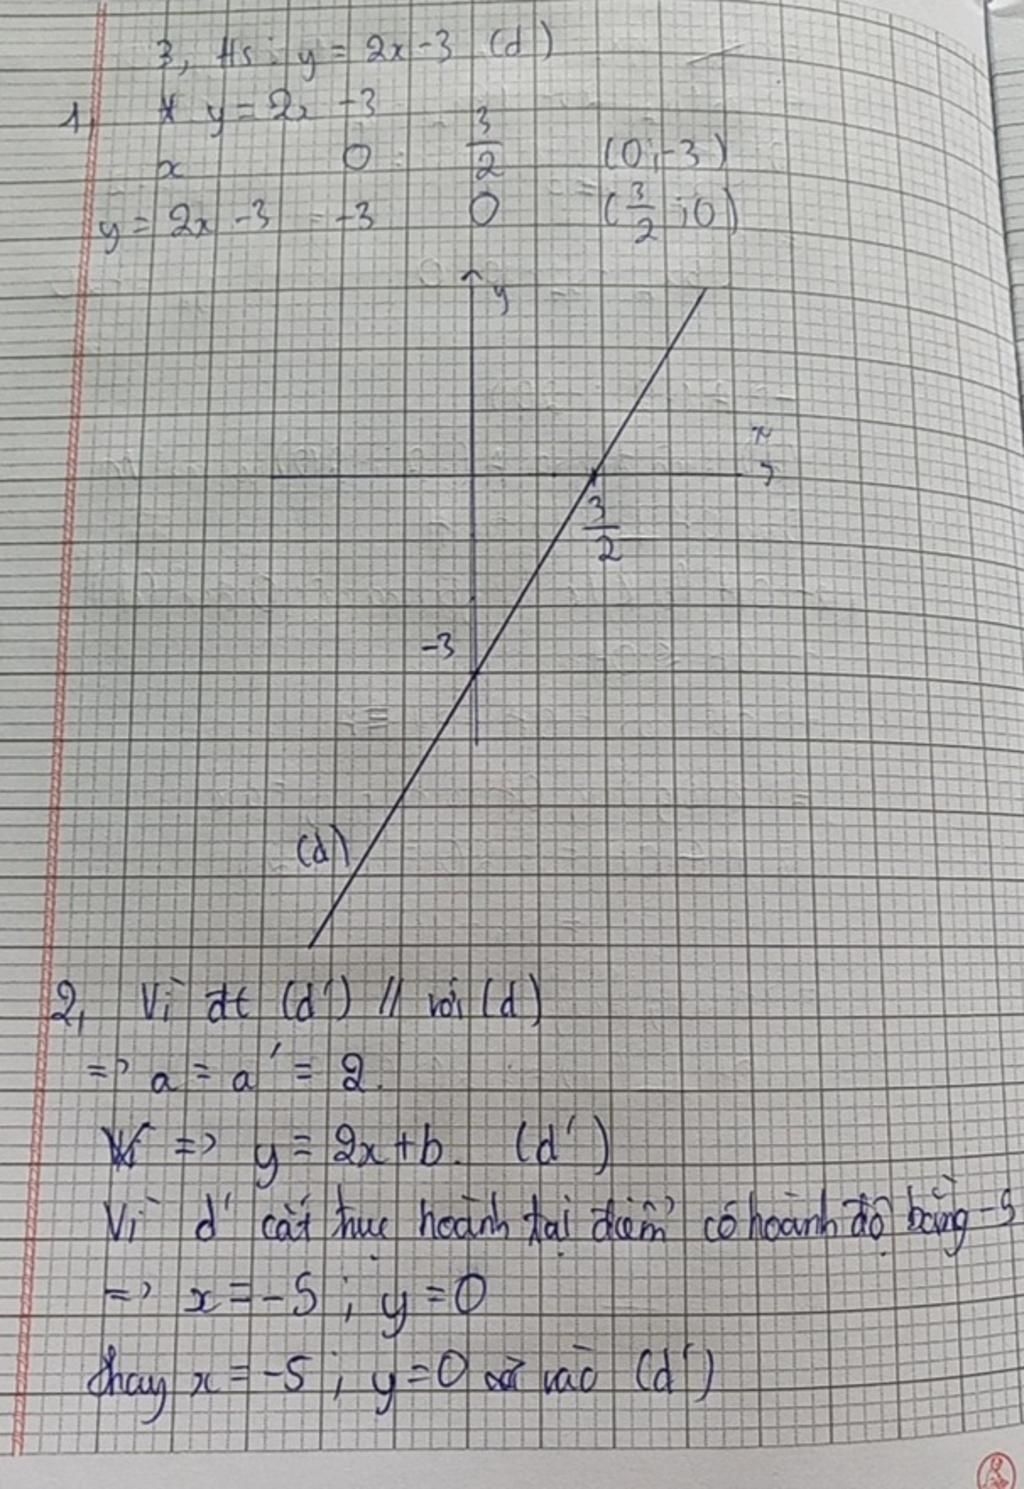 3, Hs: y = 2x - 3 (d)
1, * y = 2x - 3
x 0 3/2 (0; -3)
y = 2x - 3 -3 0 (3/2; 0)
y
x
3/2
-3
(d)
2, Vì đt (d') // với (d)
=> a = a' = 2.
=> y = 2x + b. (d')
Vì d' cắt trục hoành tại điểm có hoành độ bằng -5
=> x = -5; y = 0
thay x = -5; y = 0 vào (d')